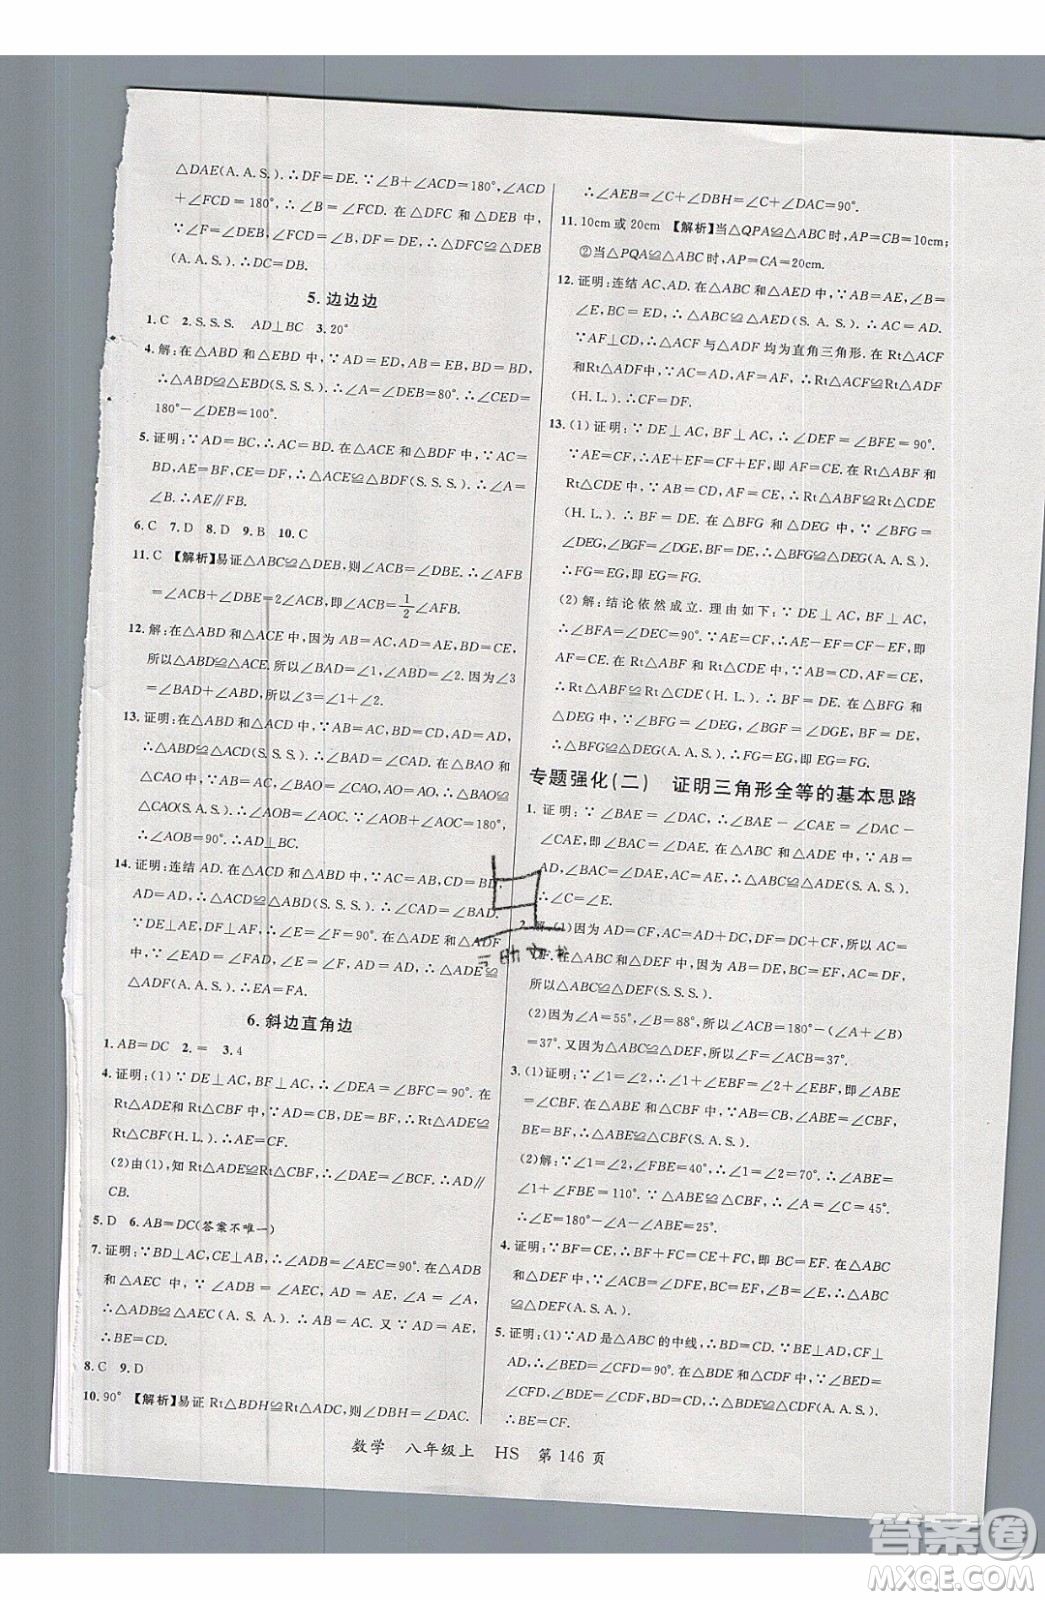 △DAE(A. A. S.). ∴DF=DE. ∵∠B+∠ACD=180°,∠ACD
+∠FCD=180°,∴∠B=∠FCD. 在△DFC 和△DEB 中,
∵∠F=∠DEB,∠FCD=∠B,DF=DE,∴△DFC≌△DEB
(A. A. S.). ∴DC=DB.
5. 边边边
1. C 2. S. S. S. AD⊥BC 3. 20°
4. 解:在△ABD 和△EBD 中,∵AD=ED,AB=EB,BD=BD,
∴△ABD≌△EBD(S. S. S.). ∴∠A=∠DEB=80°. ∴∠CED=
180°-∠DEB=100°.
5. 证明:∵AD=BC,∴AC=BD. 在△ACE 和△BDF 中,∵AC=
BD,AE=BF,CE=DF,∴△ACE≌△BDF(S. S. S.). ∴∠A=
∠B. ∴AE∥FB.
6. C 7. D 8. D 9. B 10. C
11. C 【解析】易证△ABC≌△DEB,则∠ACB=∠DBE. ∴∠AFB
=∠ACB+∠DBE=2∠ACB,即∠ACB=1/2∠AFB.
12. 解:在△ABD 和△ACE 中,因为 AB=AC,AD=AE,BD=CE,
所以△ABD≌△ACE. 所以∠BAD=∠1,∠ABD=∠2. 因为∠3
=∠BAD+∠ABD,所以∠3=∠1+∠2.
13. 证明:在△ABD 和△ACD 中,∵AB=AC,BD=CD,AD=AD,
∴△ABD≌△ACD(S. S. S.). ∴∠BAD=∠CAD. 在△BAO 和
△CAO 中,∵AB=AC,∠BAO=∠CAO,AO=AO,∴△BAO≌
△CAO(S. A. S.). ∴∠AOB=∠AOC. ∵∠AOB+∠AOC=180°,
∴∠AOB=90°. ∴AD⊥BC.
14. 证明:连结 AD. 在△ACD 和△ABD 中,∵AC=AB,CD=BD,
AD=AD,∴△ACD≌△ABD(S. S. S.). ∴∠CAD=∠BAD.
∵DE⊥AE,DF⊥AF,∴∠AED=∠AFD. 在△ADE 和△ADF
中,∵∠EAD=∠FAD,∠AED=∠AFD,AD=AD,∴△ADE≌
△ADF(A. A. S.). ∴EA=FA.
6. 斜边直角边
1. AB=DC 2. = 3. 4
4. 证明:(1)∵DE⊥AC,BF⊥AC,∴∠DEA=∠BFC=90°. 在
Rt△ADE和 Rt△CBF 中,∵AD=CB,DE=BF,∴Rt△ADE≌
Rt△CBF(H. L.). ∴AE=CF.
(2)由(1),知 Rt△ADE≌Rt△CBF,∴∠DAE=∠BCF. ∴AD∥
CB.
5. D 6. AB=DC(答案不唯一)
7. 证明:∵BD⊥AC,CE⊥AB,∴∠ADB=∠AEC=90°. 在△ADB
和△AEC 中,∵∠ADB=∠AEC,AD=AE,∠A=∠A,
∴△ADB≌△AEC(A. S. A.). ∴AB=AC. 又∵AD=AE,
∴BE=CD.
8. C 9. D
10. 90° 【解析】易证 Rt△BDH≌Rt△ADC,则∠DBH=∠DAC.
∴∠AEB=∠C+∠DBH=∠C+∠DAC=90°.
11. 10cm 或 20cm 【解析】当△QPA≌△ABC 时,AP=CB=10cm;
②当△PQA≌△ABC 时,AP=CA=20cm.
12. 证明:连结 AC、AD. 在△ABC 和△AED 中,∵AB=AE,∠B=
∠E,BC=ED,∴△ABC≌△AED(S. A. S.). ∴AC=AD.
∵AF⊥CD,∴△ACF 与△ADF 均为直角三角形. 在 Rt△ACF
和Rt△ADF 中,∵AC=AD,AF=AF,∴Rt△ACF≌Rt△ADF
(H. L.). ∴CF=DF.
13. (1)证明:∵DE⊥AC,BF⊥AC,∴∠DEF=∠BFE=90°.
∵AE=CF,∴AE+EF=CF+EF,即 AF=CE. 在 Rt△ABF 和
Rt△CDE 中,∵AB=CD,AF=CE,∴Rt△ABF≌Rt△CDE
(H. L.). ∴BF=DE. 在△BFG 和△DEG 中,∵∠BFG=
∠DEG,∠BGF=∠DGE,BF=DE,∴△BFG≌△DEG(A. A. S.).
∴FG=EG,即 BD 平分 EF.
(2)解:结论依然成立. 理由如下:∵DE⊥AC,BF⊥AC,
∴∠BFA=∠DEC=90°. ∵AE=CF,∴AE-EF=CF-EF,即
AF=CE. 在 Rt△ABF 和 Rt△CDE 中,∵AB=CD,AF=CE,
∴Rt△ABF≌Rt△CDE(H. L.). ∴BF=DE. 在△BFG 和
△DEG 中,∵∠BFG=∠DEG,∠BGF=∠DGE,BF=DE,
∴△BFG≌△DEG(A. A. S.). ∴FG=EG,即 BD 平分 EF.
专题强化(二) 证明三角形全等的基本思路
1. 证明:∵∠BAE=∠DAC,∴∠BAE-∠CAE=∠DAC-
∠CAE,即∠BAC=∠DAE. 在△ABC 和△ADE 中,∵AB=
AD,∠BAC=∠DAE,AC=AE,∴△ABC≌△ADE(S. A. S.).
∴∠C=∠E.
2. 解:(1)因为 AD=CF,AC=AD+DC,DF=DC+CF,所以AC=
DF. 在△ABC 和△DEF 中,因为 AB=DE,BC=EF,AC=DF,
所以△ABC≌△DEF(S. S. S.).
(2)因为∠A=55°,∠B=88°,所以∠ACB=180°-(∠A+∠B)
=37°. 又因为△ABC≌△DEF,所以∠F=∠ACB=37°.
3. (1)证明:∵∠1=∠2,∴∠1+∠EBF=∠2+∠EBF,即∠ABE
=∠CBF. 在△ABE 和△CBF 中,∵AB=CB,∠ABE=∠CBF,
BE=BF,∴△ABE≌△CBF(S. A. S.).
(2)解:∵∠1=∠2,∠FBE=40°,∴∠1=∠2=70°. ∴∠ABE=
∠1+∠FBE=110°. ∵△ABE≌△CBF,∴∠A=∠C=45°.
∴∠E=180°-∠A-∠ABE=25°.
4. 证明:∵BF=CE,∴BF+FC=CE+FC,即 BC=EF. 在△ABC
和△DEF 中,∵∠ACB=∠DFE,BC=EF,∠B=∠E,∴△ABC
≌△DEF(A. S. A.).
5. 证明:(1)∵AD 是△ABC 的中线,∴BD=CD. ∵BE⊥AD,CF⊥
AD,∴∠BED=∠CFD=90°. 在△BDE 和△CDF 中,∵∠BED=
∠CFD,∠BDE=∠CDF,BD=CD,∴△BDE≌△CDF(A. A. S.).
∴BE=CF.
数学 八年级上 HS 第 146 页
答案圈
MXQE.COM